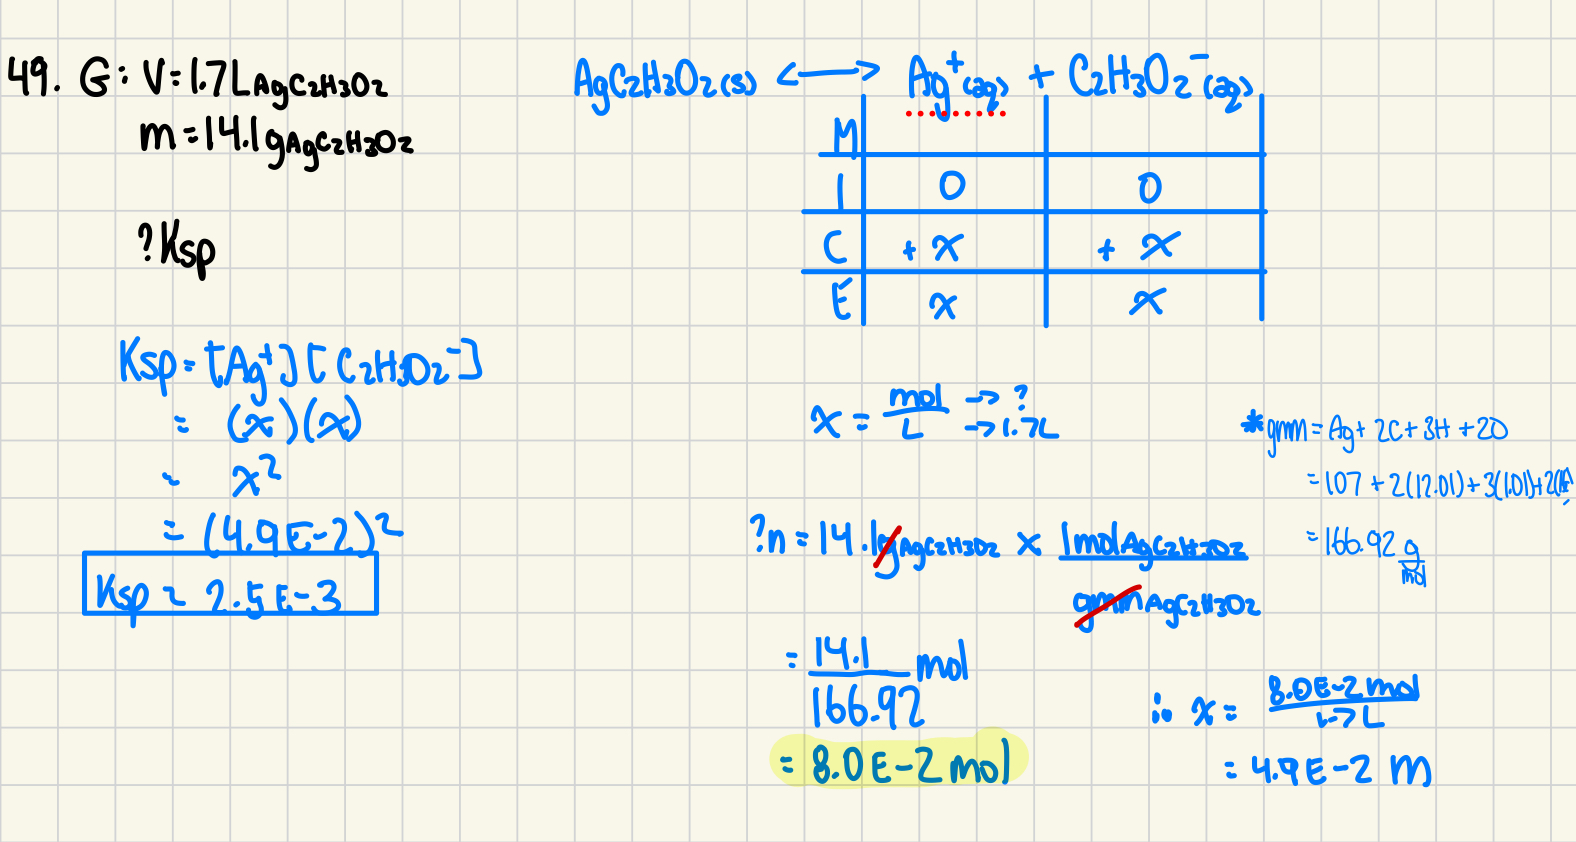 49. G: V=1.7L AgC2H3O2
m=14.1g AgC2H3O2
?Ksp
AgC2H3O2(s) <--> Ag+(aq) + C2H3O2-(aq)
M
I 0 0
C +x +x
E x x
Ksp=[Ag+][C2H3O2-]
= (x)(x)
= x²
= (4.9E-2)²
Ksp = 2.5E-3
x = mol/L -> ?
-> 1.7L
*gmm = Ag+2C+3H+2O
=107+2(12.01)+3(1.01)+2(
=166.92 g/mol
?n=14.1g AgC2H3O2 x 1mol AgC2H3O2
gmm AgC2H3O2
= 14.1/166.92 mol
= 8.0E-2 mol
∴ x= 8.0E-2 mol/1.7L
= 4.9E-2 M